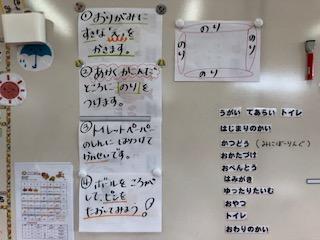 ①おりがみに
すきな「え」を
かきます。
②あかくかこんだ
ところに のり を
つけます。
③トイレットペーパー
のしんに はりつけて
かんせいです。
④ボールをころが
して、ピンを
たおしてみよう!
のり
のり
のり
のり
うがい てあらい トイレ
はじまりのかい
かつどう (みにぼーりんぐ)
おかたづけ
おべんとう
はみがき
ゆったりたいむ
おやつ
トイレ
おわりのかい